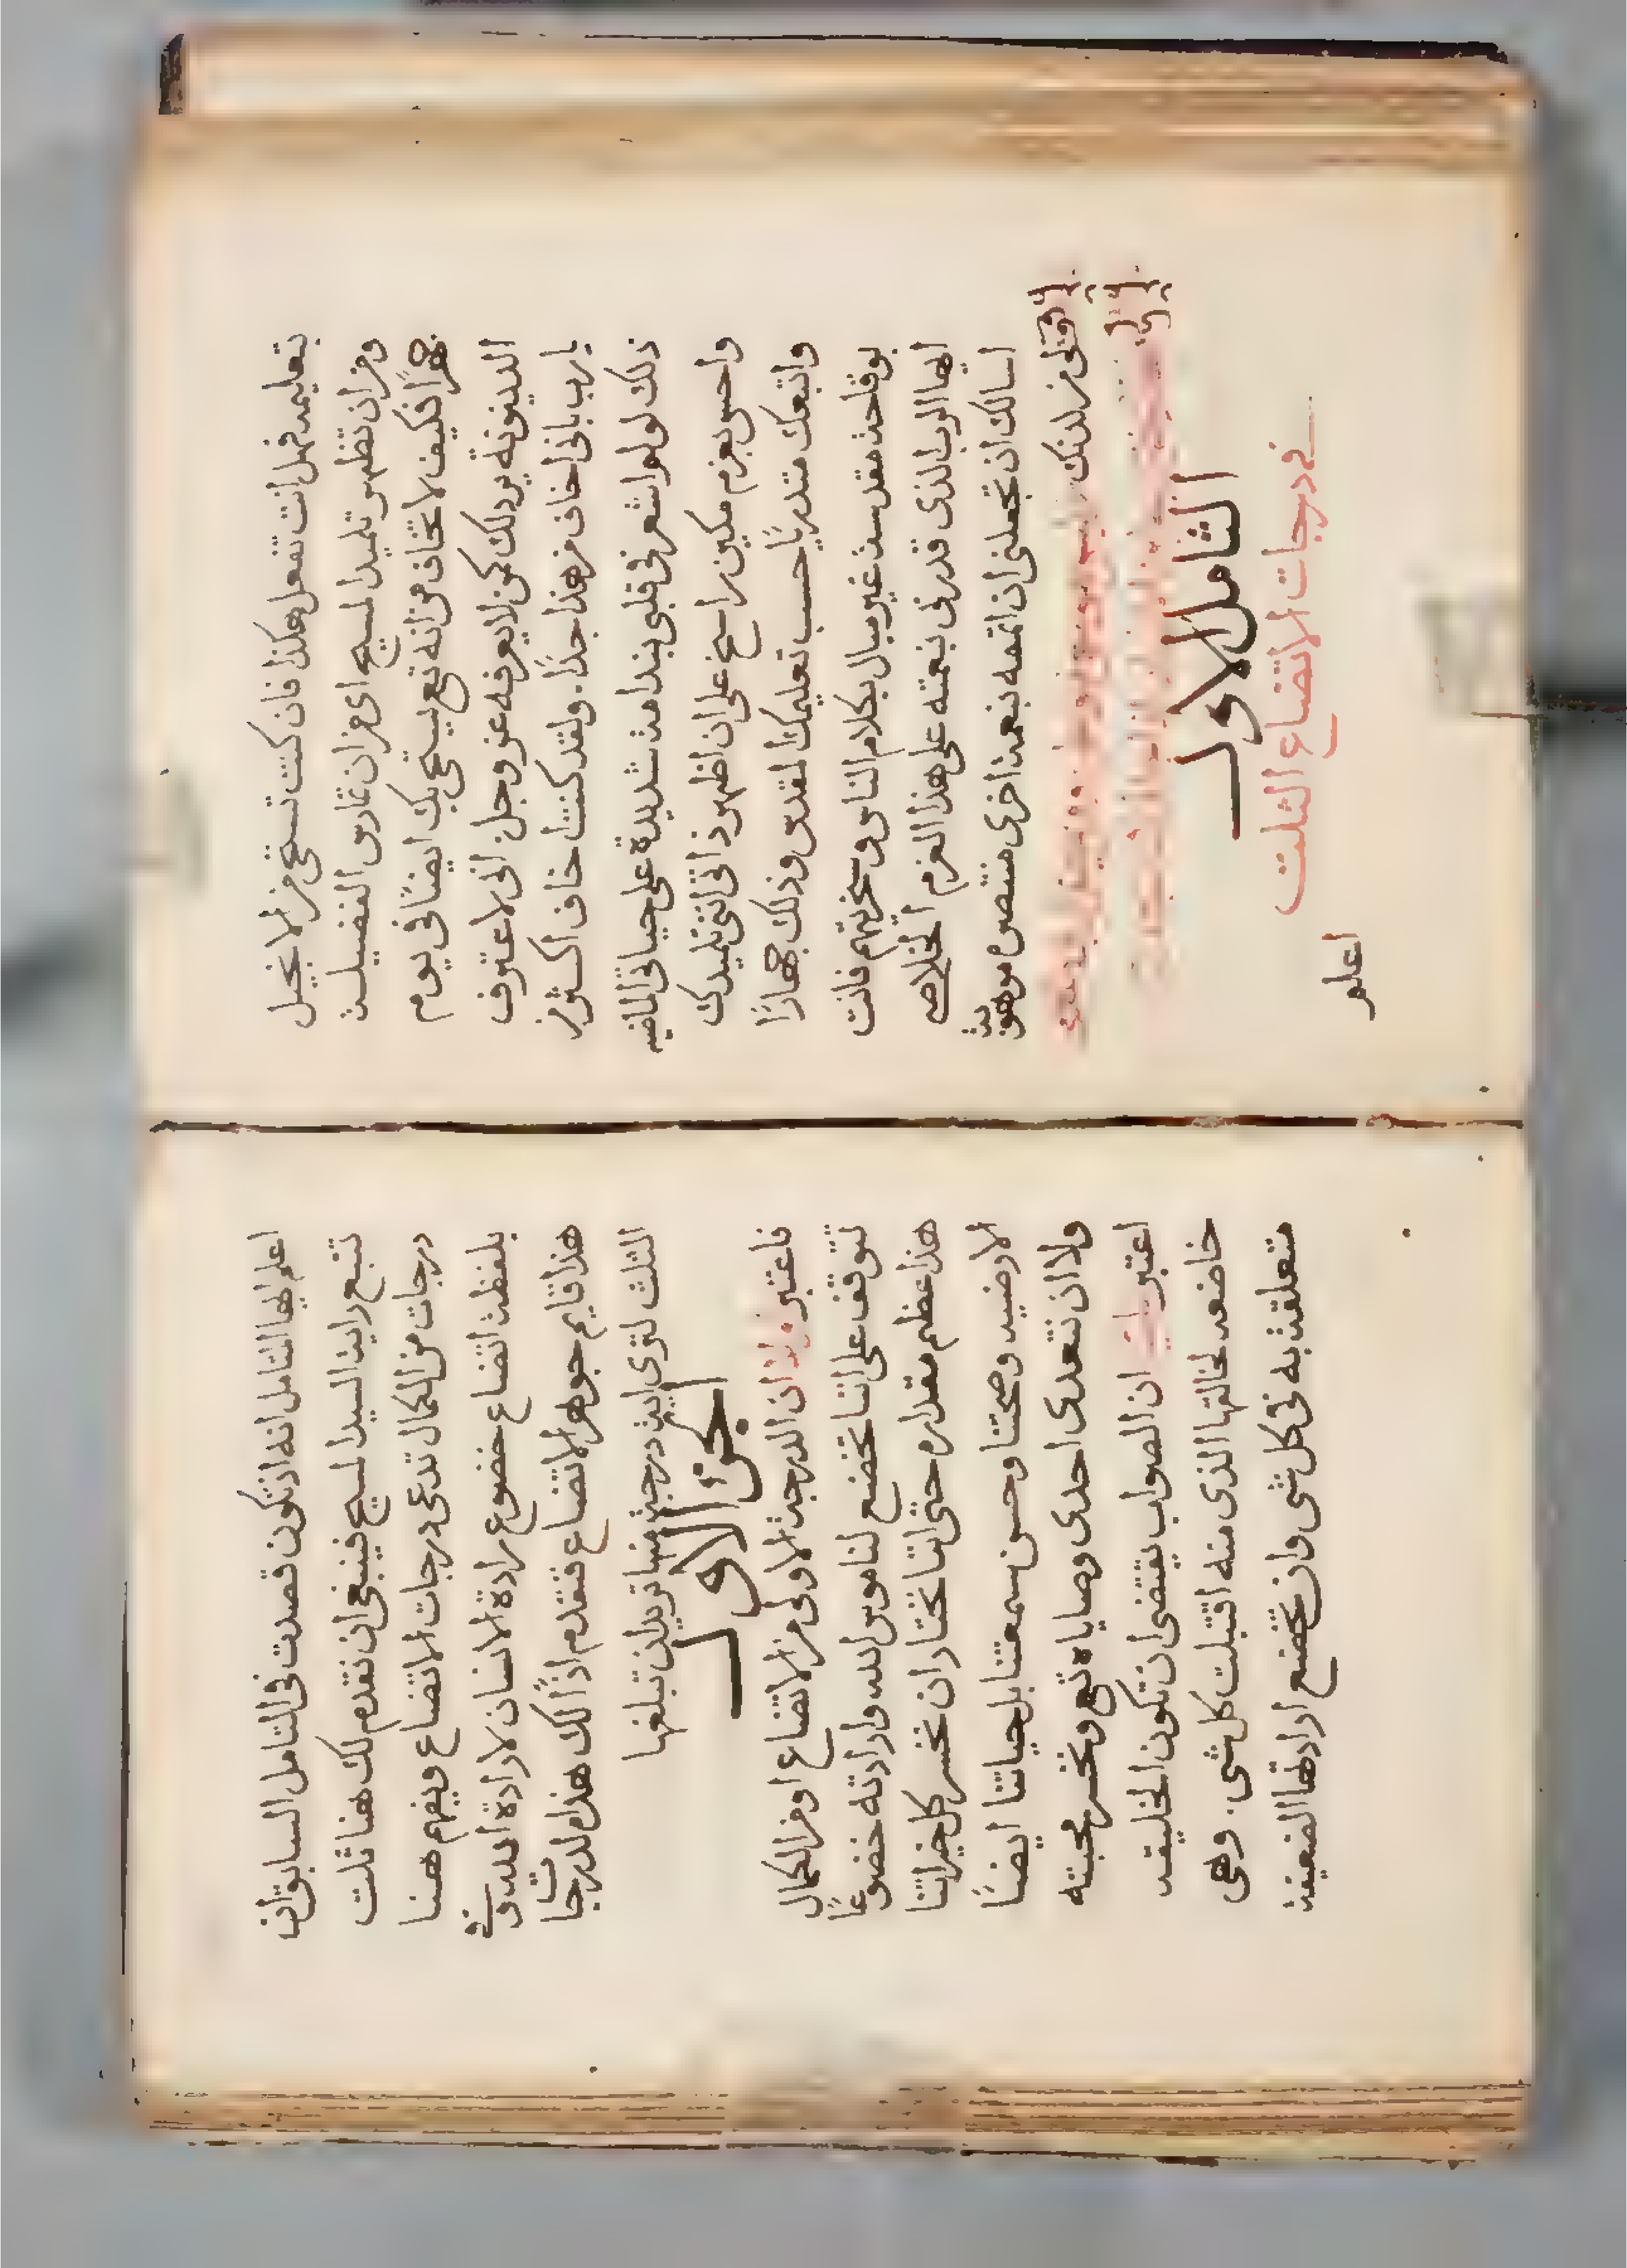 بتعليمه فهل انت تفعل هكذا فان كنت تستحى من الانجيل
ومن ان تظهر تلميذ المسيح اى من ان تمارس الفضيله
جهرًا فكيف لا تخاف من انه تع يستحى بك ايضًا فى يوم
الدينونة يرذلك كمن لا يعرفه عز وجل انى لاعترف
يارب بانى اخاف من هذا جدًا. ولقد كنت اخاف اكثر من
ذلك لولوا اشعر فى قلبى بندامه شديدة على حياتى الماضيه
واحس بعزم مكين راسخ على ان اظهر ذاتى اننى تلميذك
واتبعك متدربًا حسب تعليمك المقدس وذلك جهارًا
بوقاحه مقدسه غير مبال بكلام الناس وسخريتهم فانت
ايها الرب الذى قدرنى بنعمته على هذا العزم الخلاصى
اسالك ان تجعلنى ان اتممه بنعمه اخرى منتصره موهوبة
لى من لدنك
التامل الاول
فى درجات الاتضاع الثلث
اعلم
اعلم ايها المتامل انه اذ تكون قصدت فى التامل السابق ان
تتبع راية السيد المسيح فينبغى ان نقدم لك هنا ثلث
درجات من الكمال تدعى درجات الاتضاع ويفهم هنا
بلفظة اتضاع خضوع ارادة الانسان لارادة الله وفى
هذا قايم جوهر الاتضاع فنقدم اذًا لك هذه الدرجات
الثلث لترى اية درجة منها تريد ان تبلغها
الجزء الاول
فاعتبر اولا ان الدرجة الاولى من الاتضاع او من الكمال
تتوقف على اننا نخضع لناموس الله وارادته خضوعًا
هذا عظم مقداره حتى اننا نختار ان نخسر كل خيراتنا
الارضيه وصحتنا وحسن سمعتنا بل حياتنا ايضًا
ولا ان نتعدى احدى وصاياه تع ونخسر محبته
اعتبر ثانيًا ان الصواب يقتضى ان تكون الخليقه
خاضعه لخالقها الذى منه اقتبلت كل شى. وهى
متعلقة به فى كل شى وان تخضع ارادتها الضعيفة